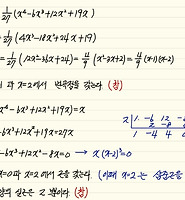 = 1/27 (x⁴-6x³+12x²+19x)
= 1/27 (4x³-18x²+24x+19)
= 1/27 (12x²-36x+24) = 4/9 (x²-3x+2) = 4/9 (x-1)(x-2)
과 x=2에서 변곡점을 갖는다. (참)
x⁴-6x³+12x²+19x) = x
x 1 -6 12 -8
2 -8 8
1 -4 4 0
-6x³+12x²+19x=27x
-6x³+12x²-8x=0 → x(x-2)³=0
=0과 x=2에서 근을 갖는다. (이때 x=2는 삼중근
실근은 2 뿐이다. (참)